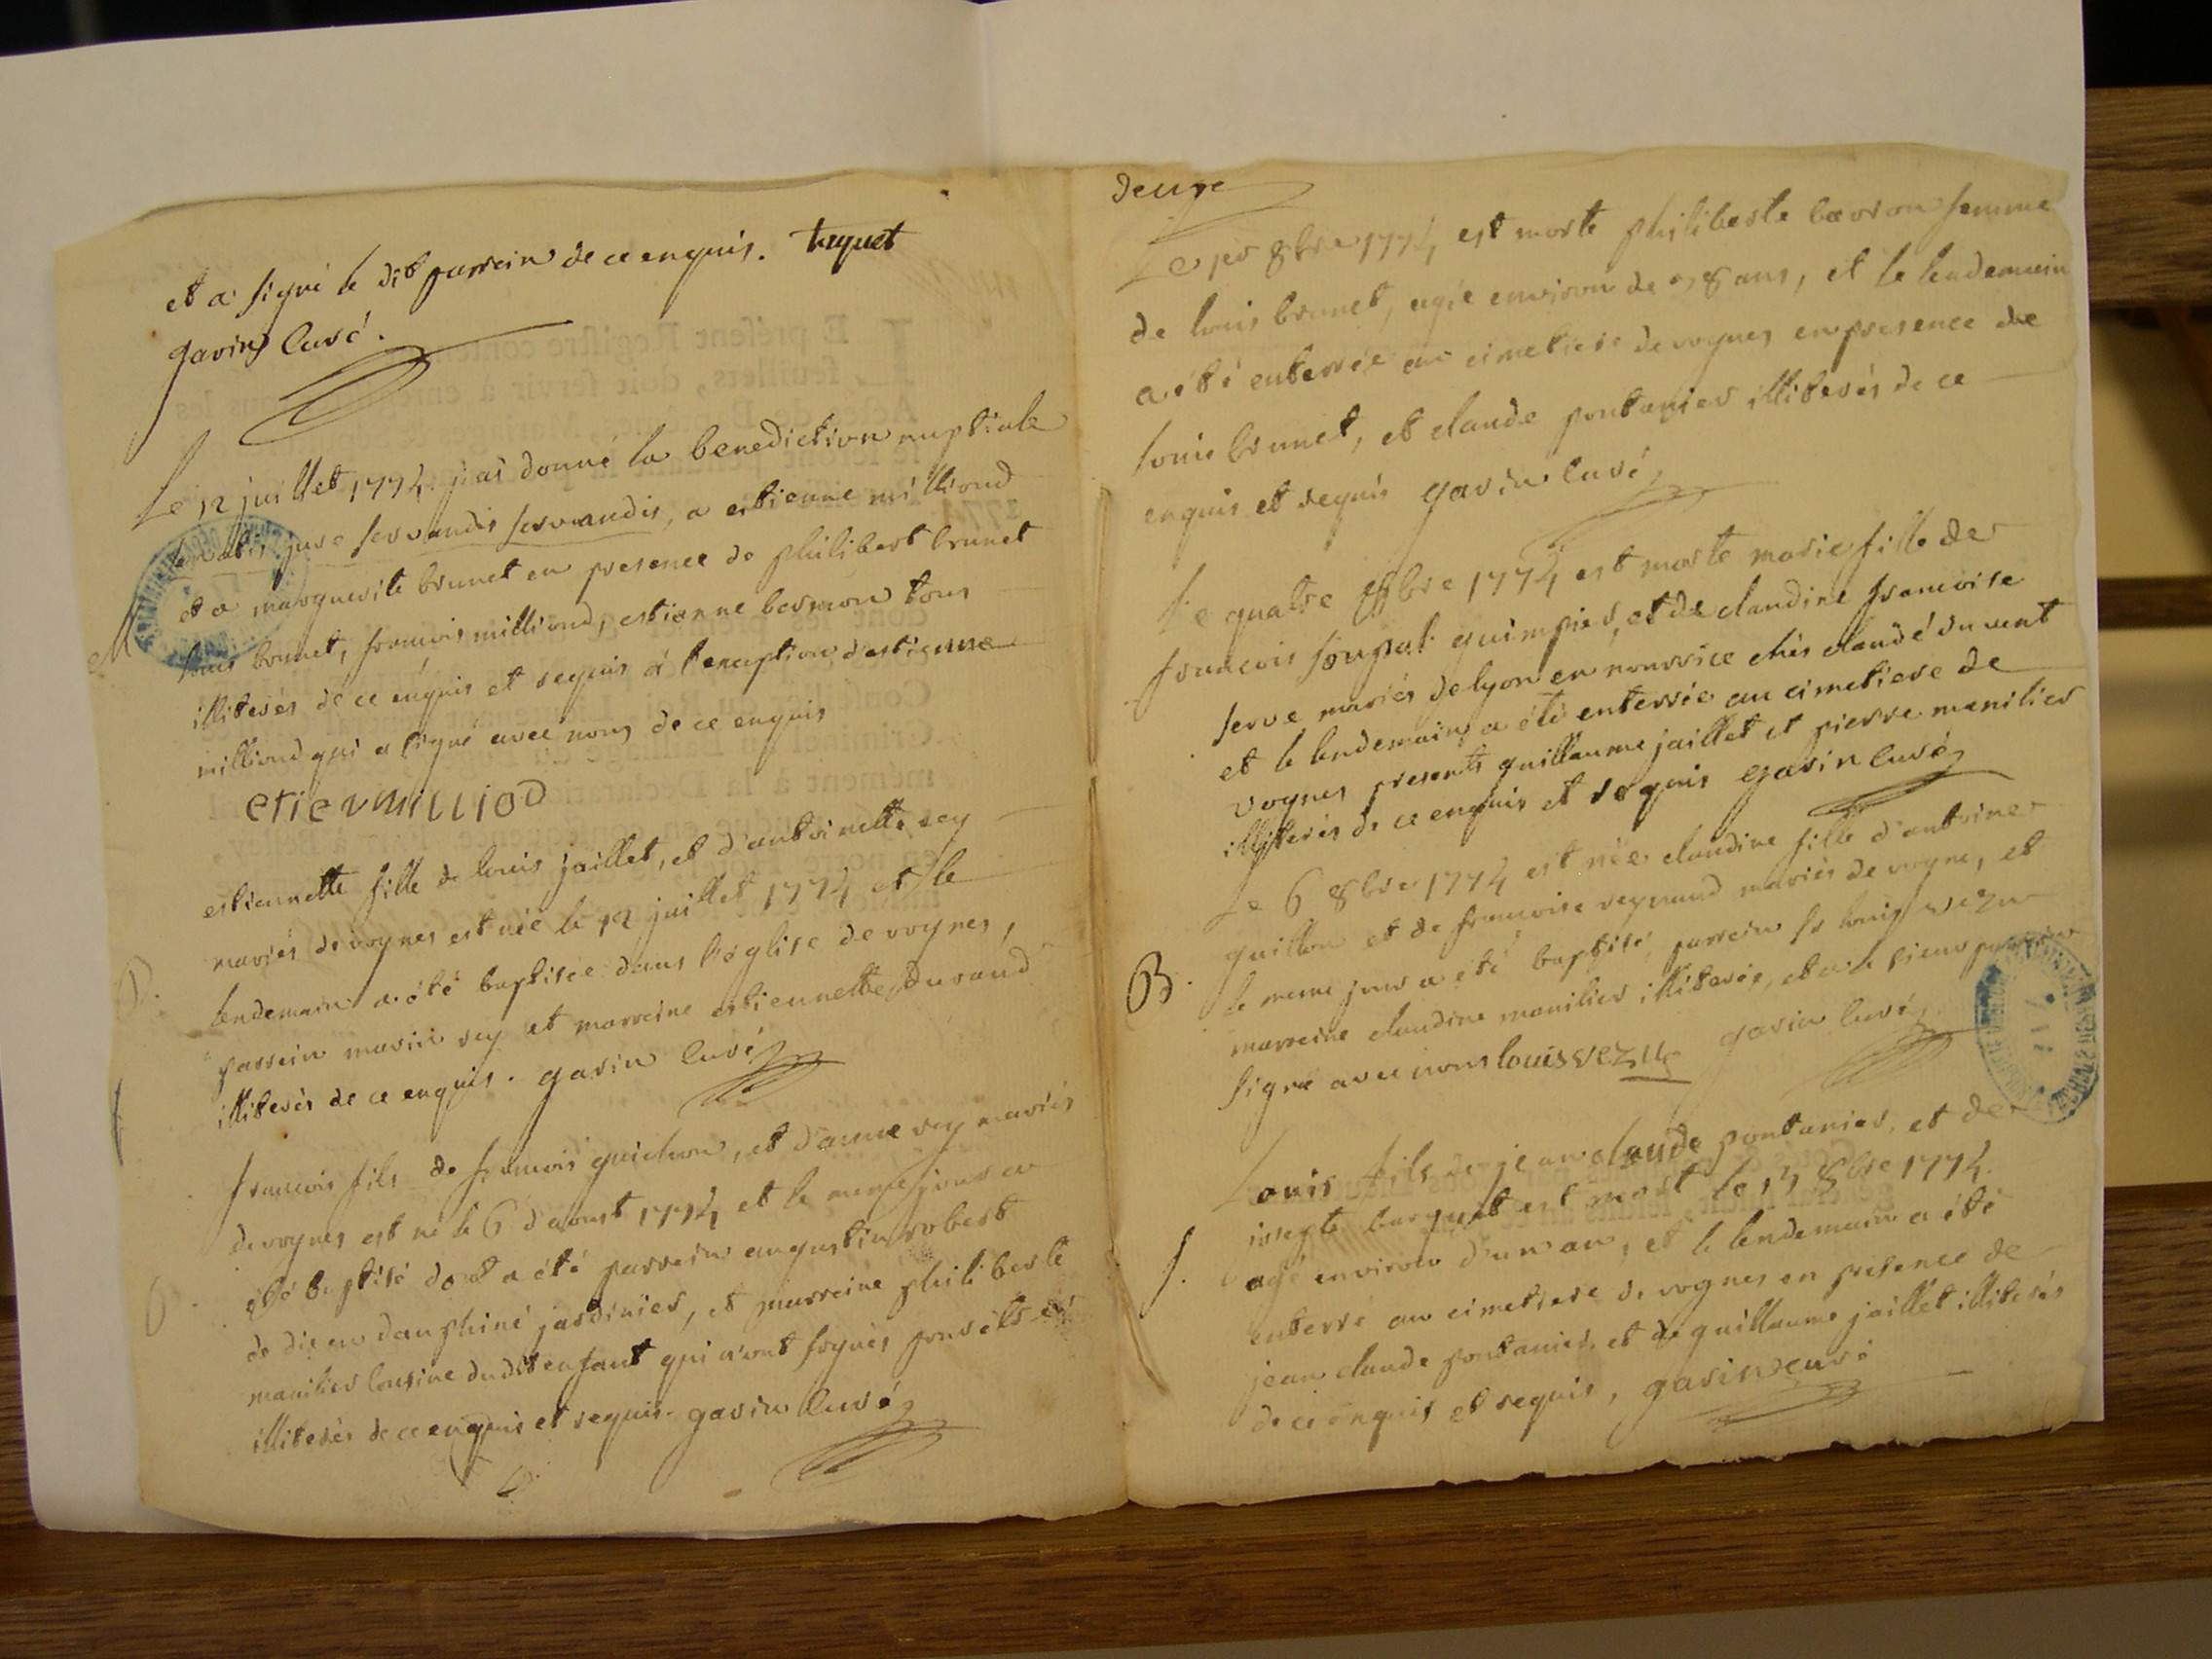 et a signé le dit parrein de ce enquis. tuquet
garin curé.
Le 12 juillet 1774 j'ai donné la benediction nuptiale
servatis jure servandis, a estienne milliond
et a marguerite brunet en presence de philibert brunet
louis brunet, francois milliond, estienne bernion tous
illiterés de ce enquis et requis à l'exception d'estienne
milliond qui a signé avec nous de ce enquis
M
etienmilliod
estiennette fille de louis jaillet, et d'antoinette rey
mariés de vognes est née le 12 juillet 1774 et le
lendemain a été baptisée dans l'église de vognes,
parrein marin rey et marreine estiennette durand
illiterés de ce enquis. garin curé
francois fils de francois guichon, et d'anne rey mariés
de vognes est né le 6 d'aoust 1774 et le meme jour a
été baptisé dont a été parrein augustin robert
de die en dauphiné jardinier, et marreine philiberte
manilier cousine dudit enfant qui n'ont signés pour être
illiterés de ce enquis et requis. garin curé
deuxe
Le per 8bre 1774 est morte philiberte barron femme
de louis brunet, agée environ de 78 ans, et le lendemain
a été enterrée au cimetiere de vognes en presence de
louis brunet, et claude pontanier illiterés de ce
enquis et requis garin curé
Le quatre 8bre 1774 est morte marie fille de
francois guimpier, et de claudine francoise
serve mariés de lyon en nourrice chés claude duvent
et le lendemain a été enterrée au cimetiere de
vognes presents guillaume jaillet et pierre manilier
illiterés de ce enquis et requis garin curé
B.
Le 6 8bre 1774 est née claudine fille d'antoine
guillon et de francoise reynaud mariés de vogne, et
le meme jour a été baptisé, parrein sr louis vezu
marreine claudine manilier illiterée, et a le sieur parrein
signé avec nous louis vezu garin curé
Louis fils de jean claude pontanier, et de
S.
est mort le 13 8bre 1774
agé environ d'un an, et le lendemain a été
enterré au cimetiere de vognes en presence de
jean claude pontanier, et de guillaume jaillet illiterés
de ce enquis et requis, garin curé